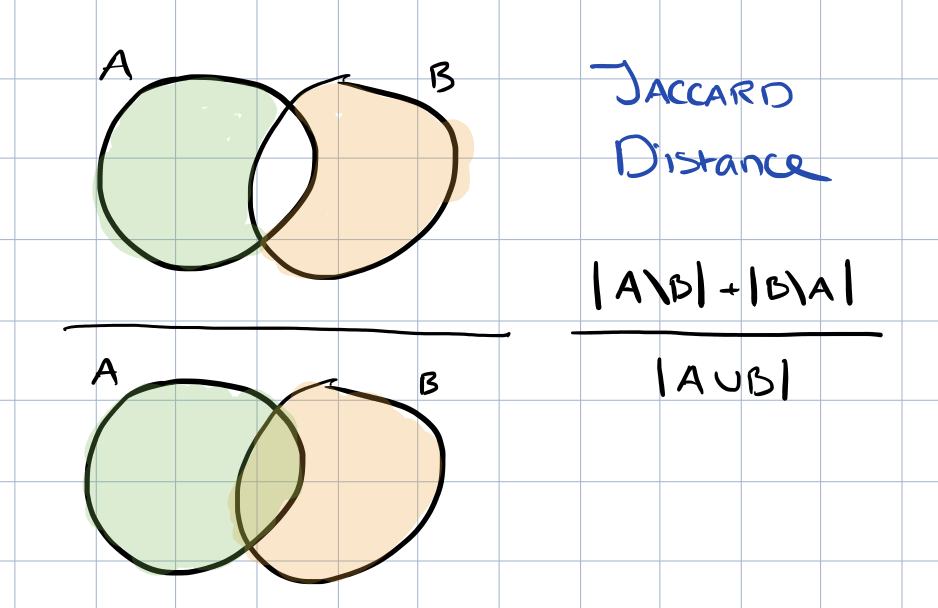 A
B
JACCARD
Distance
|A\B| + |B\A|
|A∪B|
A
B